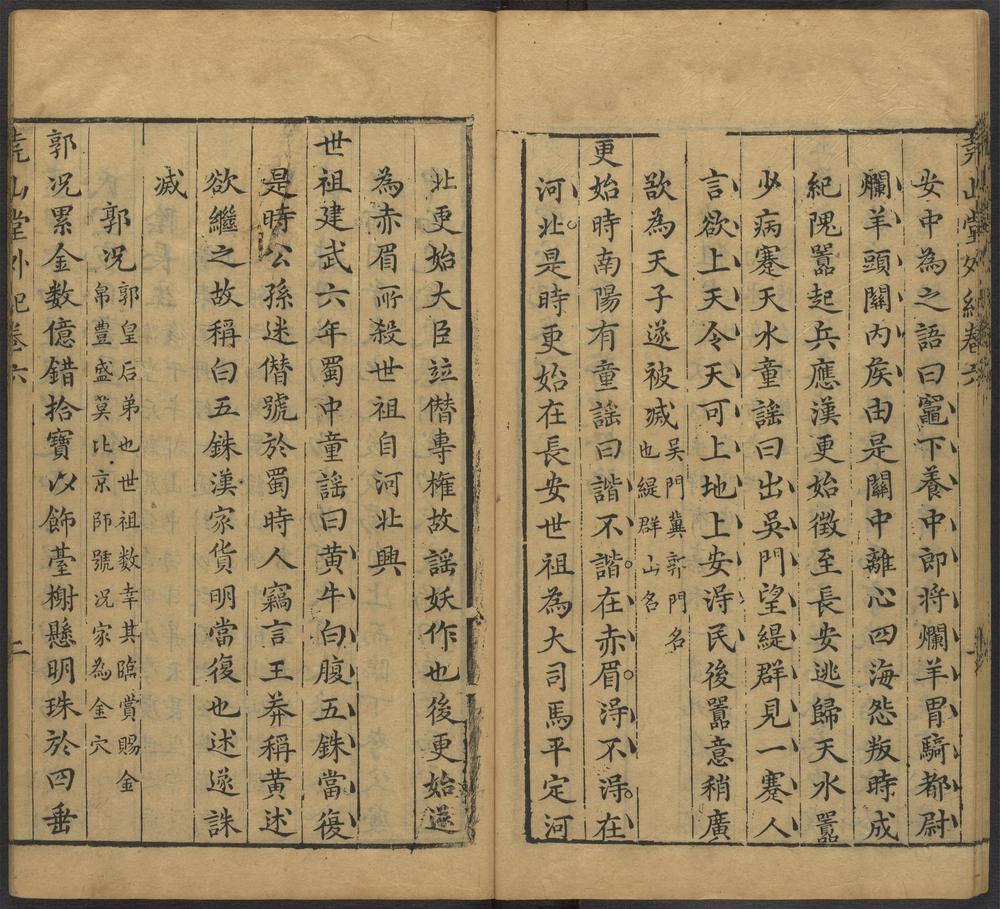 安中為之語曰竈下養中郎將爛羊胃騎都尉
爛羊頭關內侯由是關中離心四海怨叛時成
紀隗囂起兵應漢更始徵至長安逃歸天水囂
少病蹇天水童謠曰出吳門望緹群見一蹇人
言欲上天令天可上地上安淂民後囂意稍廣
欲為天子遂被滅吳門冀郭門名也緹群山名
更始時南陽有童謠曰諧不諧在赤眉淂不淂在
河北是時更始在長安世祖為大司馬平定河
北更始大臣竝僭專權故謠妖作也後更始遂
為赤眉所殺世祖自河北興
世祖建武六年蜀中童謠曰黄牛白腹五銖當復
是時公孫述僭號於蜀時人竊言王莽稱黄述
欲繼之故稱白五銖漢家貨明當復也述遂誅
滅
郭况郭皇后弟也世祖数幸其臨賞賜金帛豊盛莫比京師號况家為金穴
郭况累金数億錯拾寶以飾臺榭懸明珠於四垂
堯山堂外紀卷六